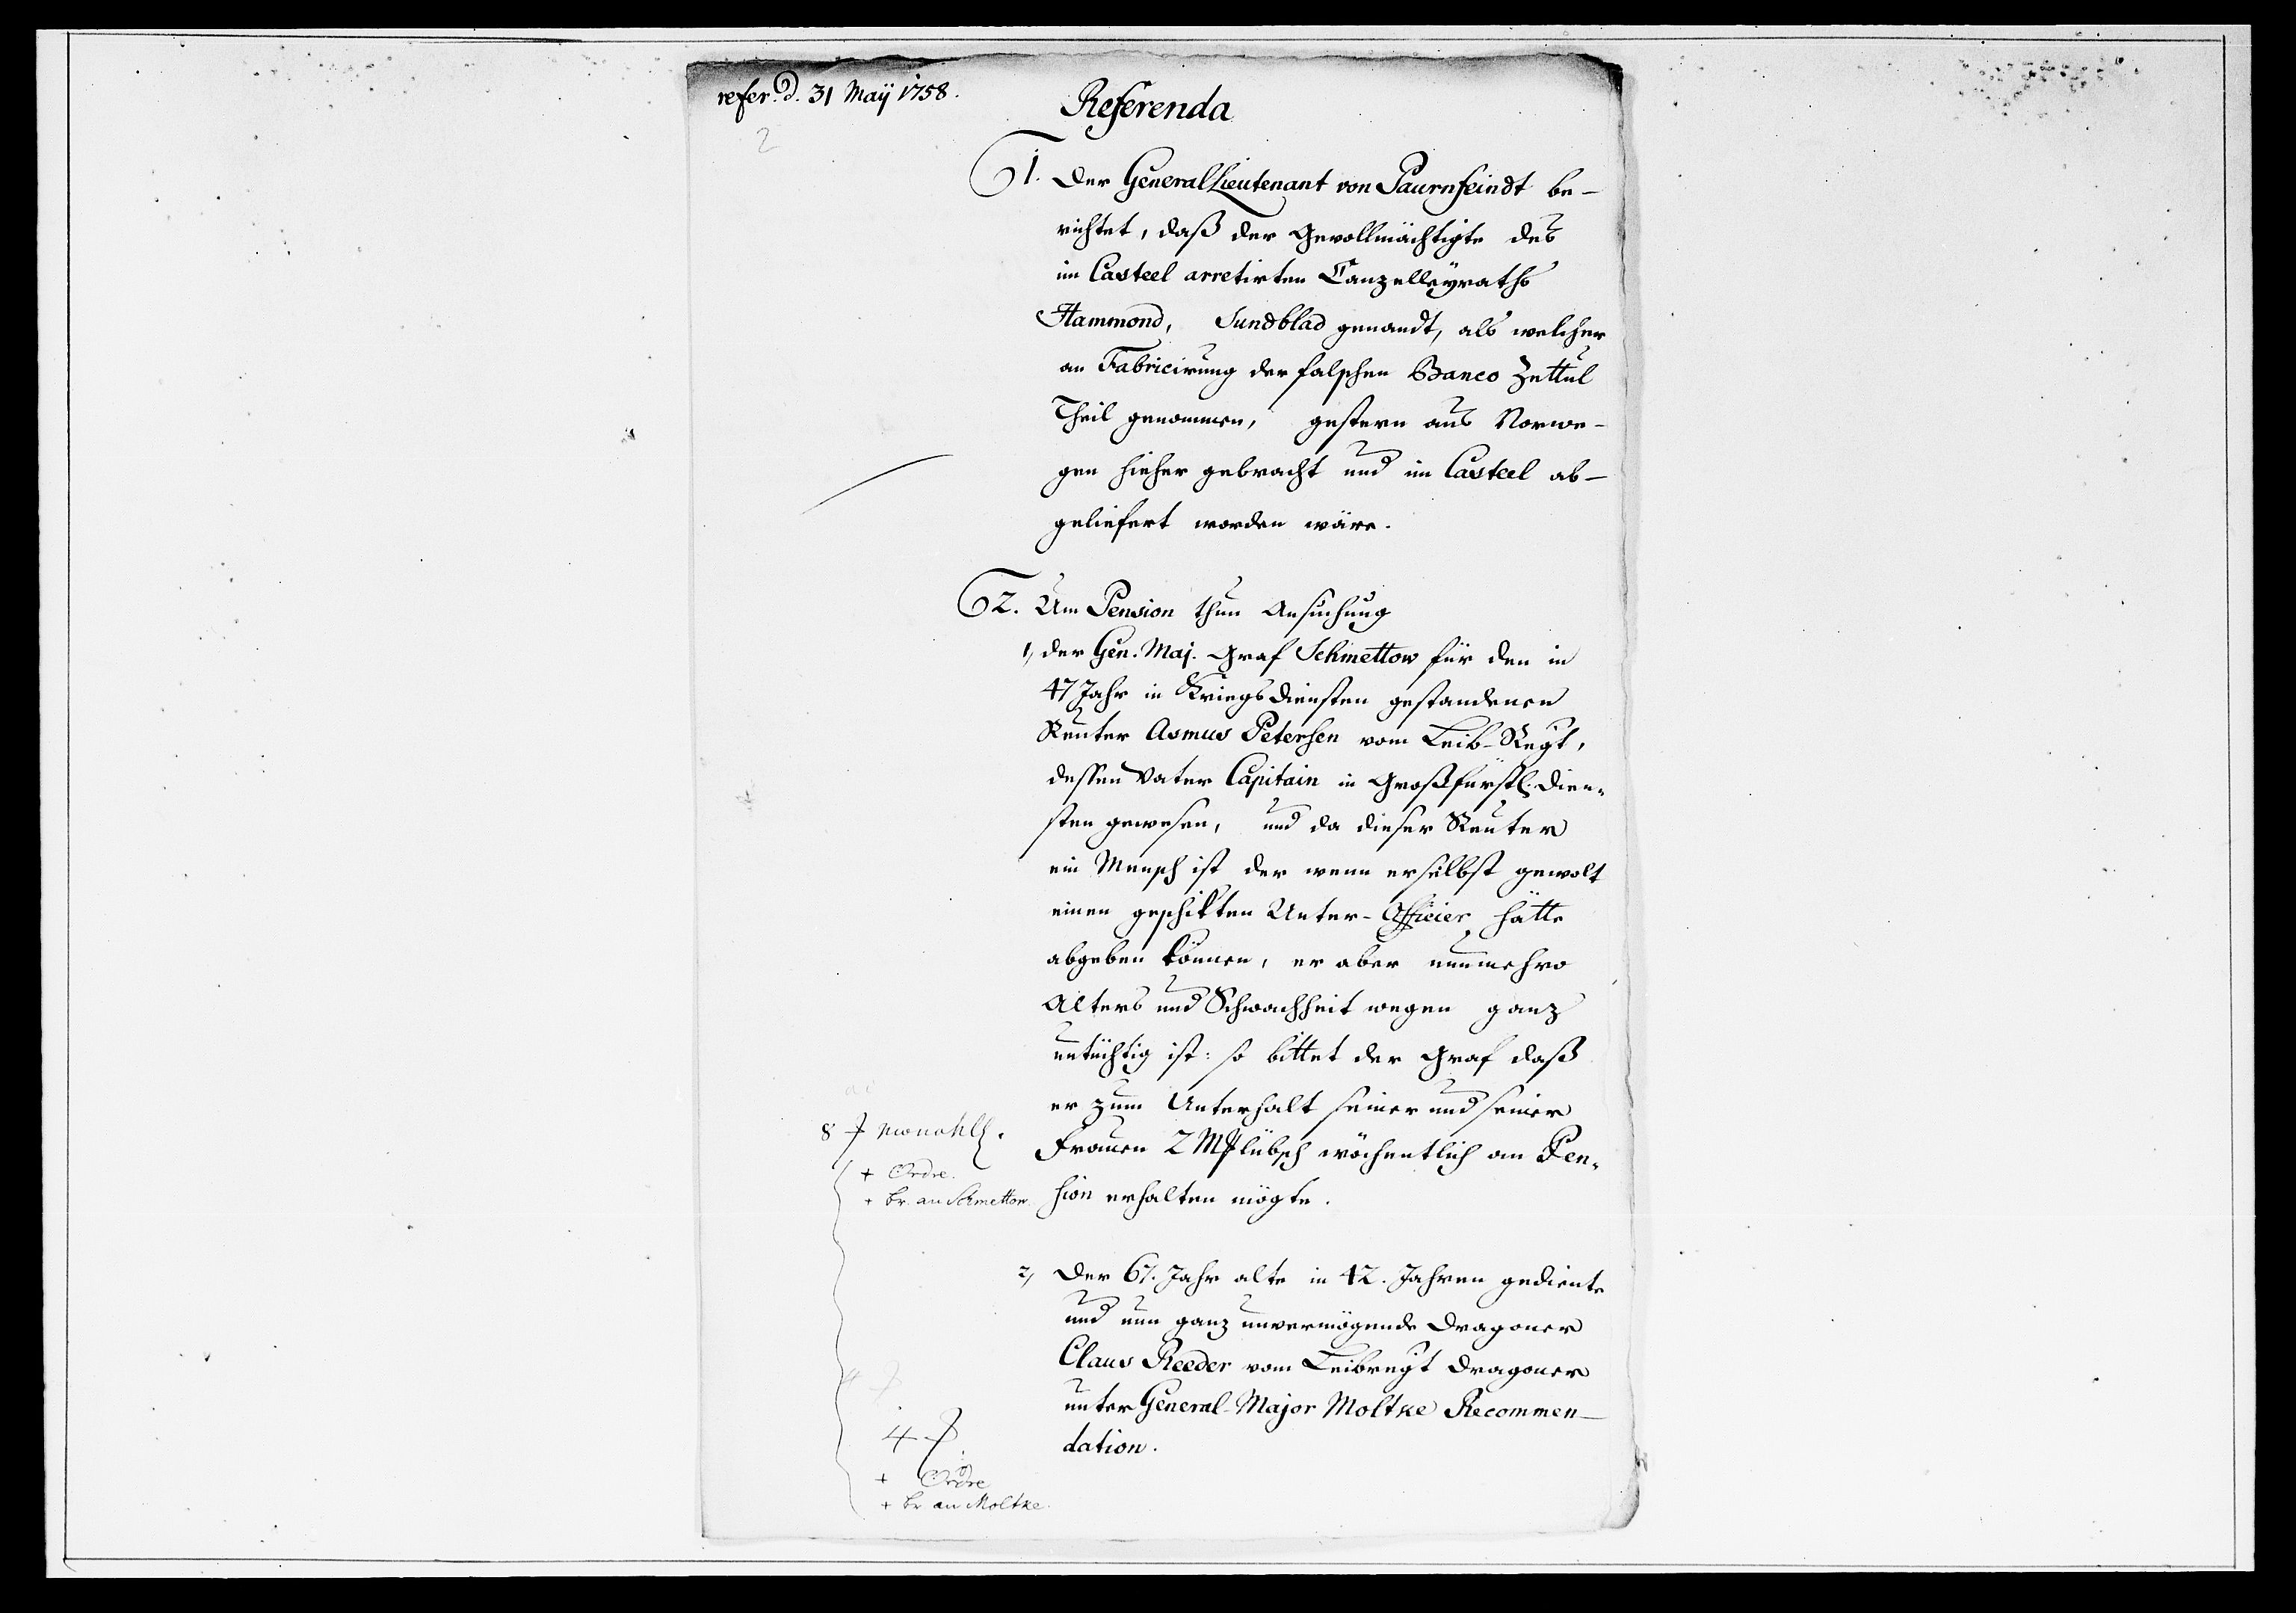 refer. d. 31 Maÿ 1758.
2
Referenda
1. Der General Lieutenant von Paurnfeindt be-
richtet, daß der Gevollmächtigte des
im Casteel arretirten Canzelleyraths
Hammond, Sundblad genandt, als welcher
an Fabricirung der falschen Banco Zettul
Theil genommen, gestern aus Norwe-
gen hieher gebracht und im Casteel ab-
geliefert worden wäre.
2. Um Pension thun Ansuchung
1, der Gen. Maj. Graf Schmettow für den in
47 Jahr in Kriegsdiensten gestandenen
Reuter Asmus Petersen vom Leib-Regt,
dessen Vater Capitain in Großfürstl. Dien-
sten gewesen, und da dieser Reuter
ein Mensch ist der wenn er selbst gewolt
einen geschikten Unter-Officier hätte
abgeben können, er aber nunmehro
Alters und Schwachheit wegen ganz
untüchtig ist: so bittet der Graf daß
er zum Unterhalt seiner und seiner
Frauen 2 M lübsch wöchentlich an Pen-
sion erhalten mögte.
8 monathl.
+ Ordre.
+ br. an Schmettow.
2, Der 67. Jahr alte in 42. Jahren gediente
und nun ganz unvermögende Dragoner
Claus Reeder vom Leibregt Dragoner
unter General-Major Moltke Recommen-
dation.
4
+ Ordre
+ br an Moltke.